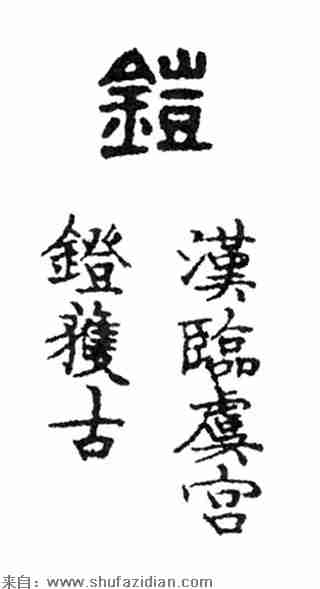 鎧
漢臨虞宮
鐙獲古
来自：www.shufazidian.com